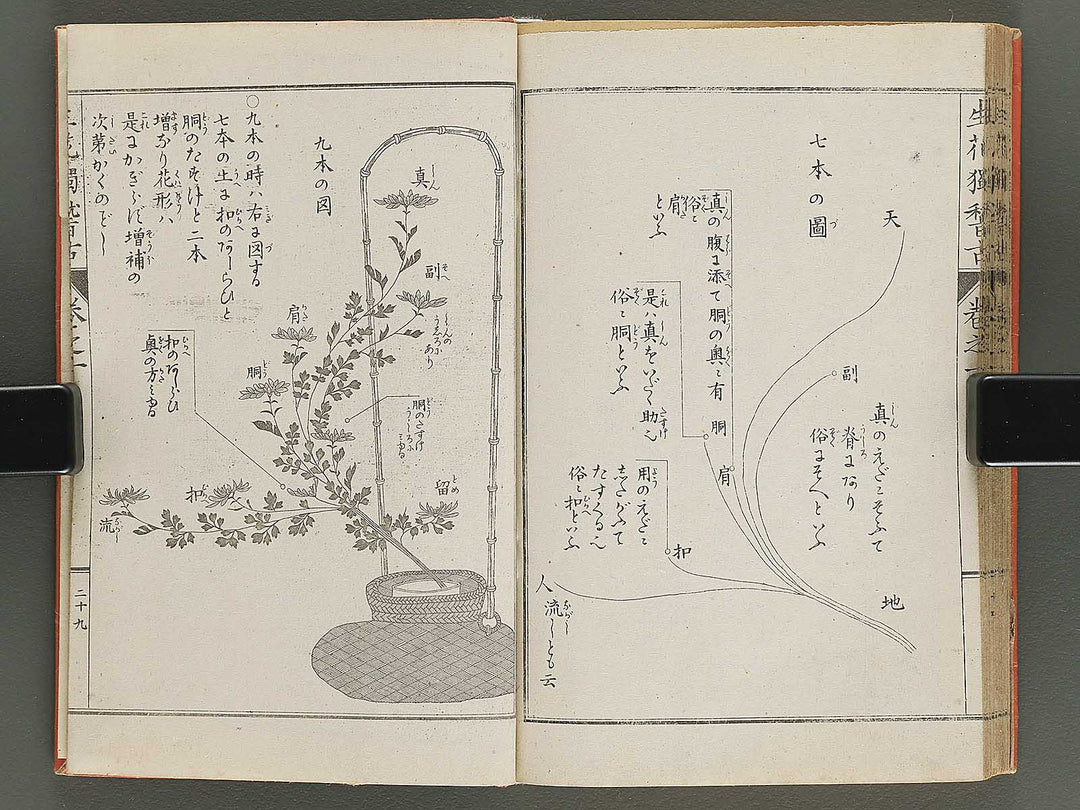 生花獨稽古
巻之一
七本の圖
天
副
真のえだにそふて
脊にあり
俗にそへといふ
地
真の腹に添て胴の奥に有
俗に肩
といふ
肩
胴
是ハ真をいだく助也
俗に胴といふ
扣
用のえだに
したがふて
たすくる也
俗に扣といふ
人
流しとも云
九本の図
真
副
しんの
うしろに
あり
肩
胴
胴のたすけ
うしろに
みゆる
留
扣
流し
扣のあしらひ
奥の方にみゆる
○九本の時ハ右に図する
七本の上に扣のあしらひと
胴のたすけと二本
増なり花形ハ
是にかぎらず増補の
次第かくのごとし
二十九